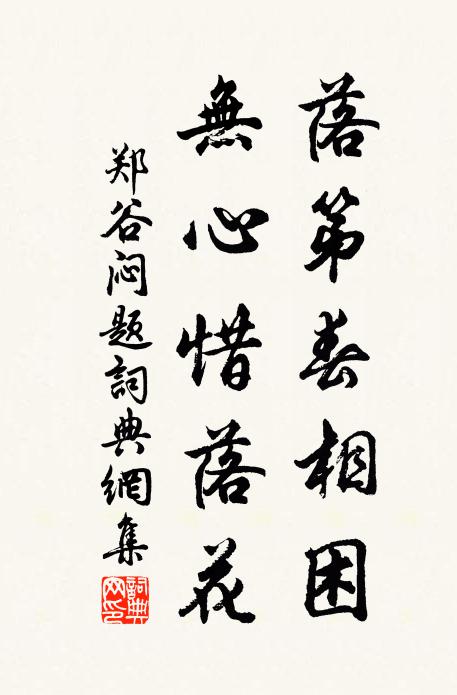 落第春相困
無心惜落花
郑谷闷题詞典網集
詞典网印